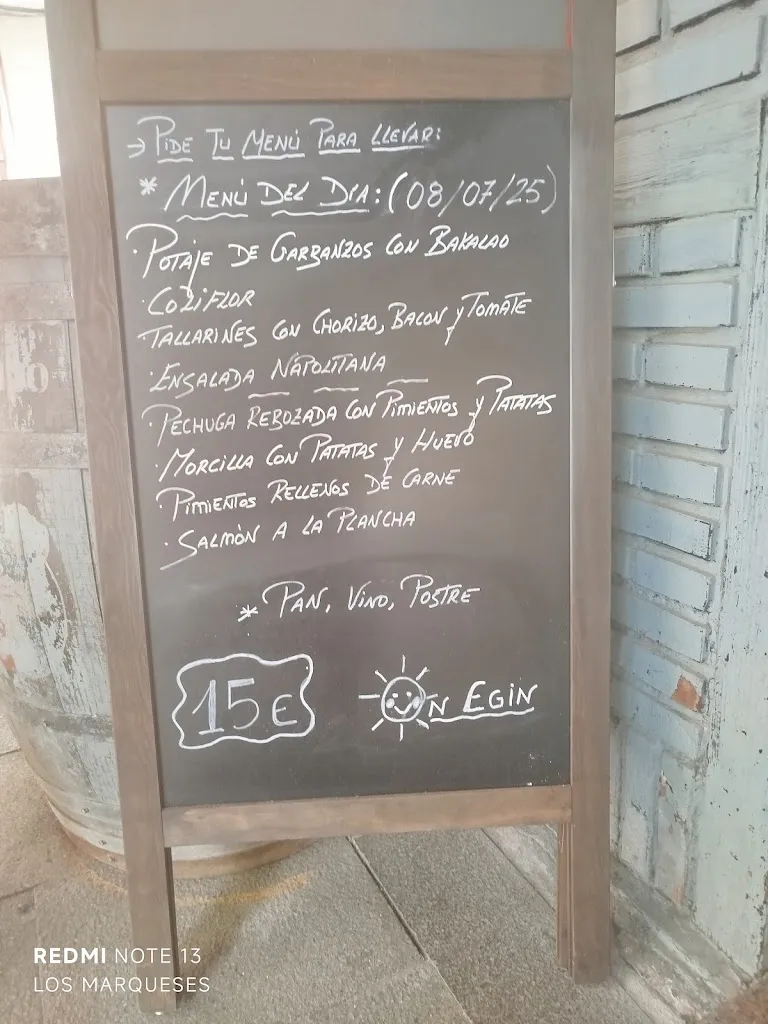 → PIDE TU MENÚ PARA LLEVAR:
* MENÚ DEL DÍA: (08/07/25)
· POTAJE DE GARBANZOS CON BAKALAO
· COLIFLOR
· TALLARINES CON CHORIZO, BACON Y TOMATE
· ENSALADA NAPOLITANA
· PECHUGA REBOZADA CON PIMIENTOS Y PATATAS
· MORCILLA CON PATATAS Y HUEVO
· PIMIENTOS RELLENOS DE CARNE
· SALMÓN A LA PLANCHA
* PAN, VINO, POSTRE
15€
ON EGIN
REDMI NOTE 13
LOS MARQUESES